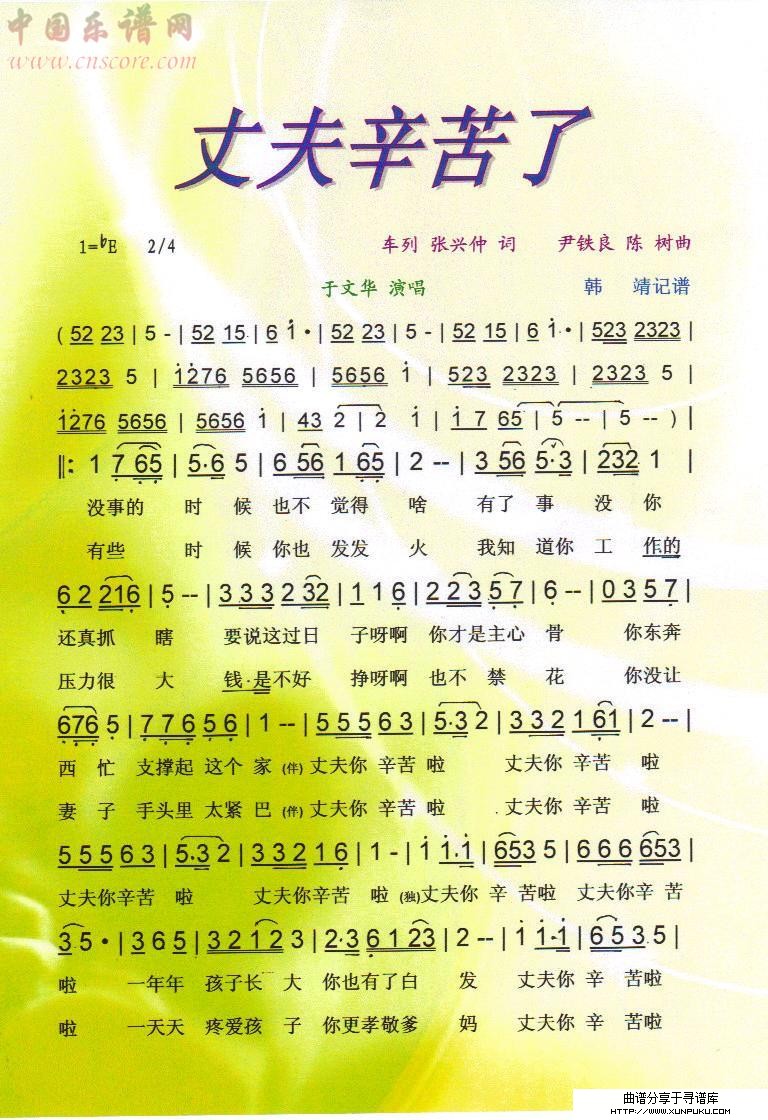 中国乐谱网
www.cnscore.com
丈夫辛苦了
1=♭E 2/4
车列 张兴仲 词 尹铁良 陈 树曲
于文华 演唱 韩 靖记谱
( 52 23 | 5 - | 52 15 | 6 1 • | 52 23 | 5 - | 52 15 | 6 1 • | 523 2323 |
2323 5 | 1276 5656 | 5656 1 | 523 2323 | 2323 5 |
1276 5656 | 5656 1 | 43 2 | 2 1 | 1 7 65 | 5 -- | 5 -- ) |
‖: 1 7 65 | 5·6 5 | 6 56 1 65 | 2 -- | 3 56 5·3 | 232 1 |
没事的 时 候 也不 觉得 啥 有了 事 没 你
有些 时 候 你也 发发 火 我知 道你 工 作的
6 2 216 | 5 -- | 3 3 3 2 32 | 1 1 6 | 2 2 3 5 7 | 6 -- | 0 3 5 7 |
还真抓 瞎 要说这过日 子呀啊 你才是主心 骨 你东奔
压力很 大 钱·是不好 挣呀啊 也不 禁 花 你没让
676 5 | 7 7 6 5 6 | 1 -- | 5 5 5 6 3 | 5·3 2 | 3 3 2 1 61 | 2 -- |
西 忙 支撑起 这个 家 (伴) 丈夫你 辛苦 啦 丈夫你 辛苦 啦
妻 子 手头里 太紧 巴 (伴) 丈夫你 辛苦 啦 丈夫你 辛苦 啦
5 5 5 6 3 | 5·3 2 | 3 3 2 1 6 | 1 - | 1 1·1 | 653 5 | 6 6 6 653 |
丈夫你辛苦 啦 丈夫你辛苦 啦 (独)丈夫你 辛 苦啦 丈夫你辛 苦
3 5 • | 3 6 5 | 3 2 1 2 3 | 2·3 6 1 23 | 2 -- | 1 1·1 | 6 5 3 5 |
啦 一年年 孩子长 大 你也有了白 发 丈夫你 辛 苦啦
啦 一天天 疼爱孩 子 你更孝敬爹 妈 丈夫你 辛 苦啦
曲谱分享于寻谱库
HTTP://WWW.XUNPUKU.COM